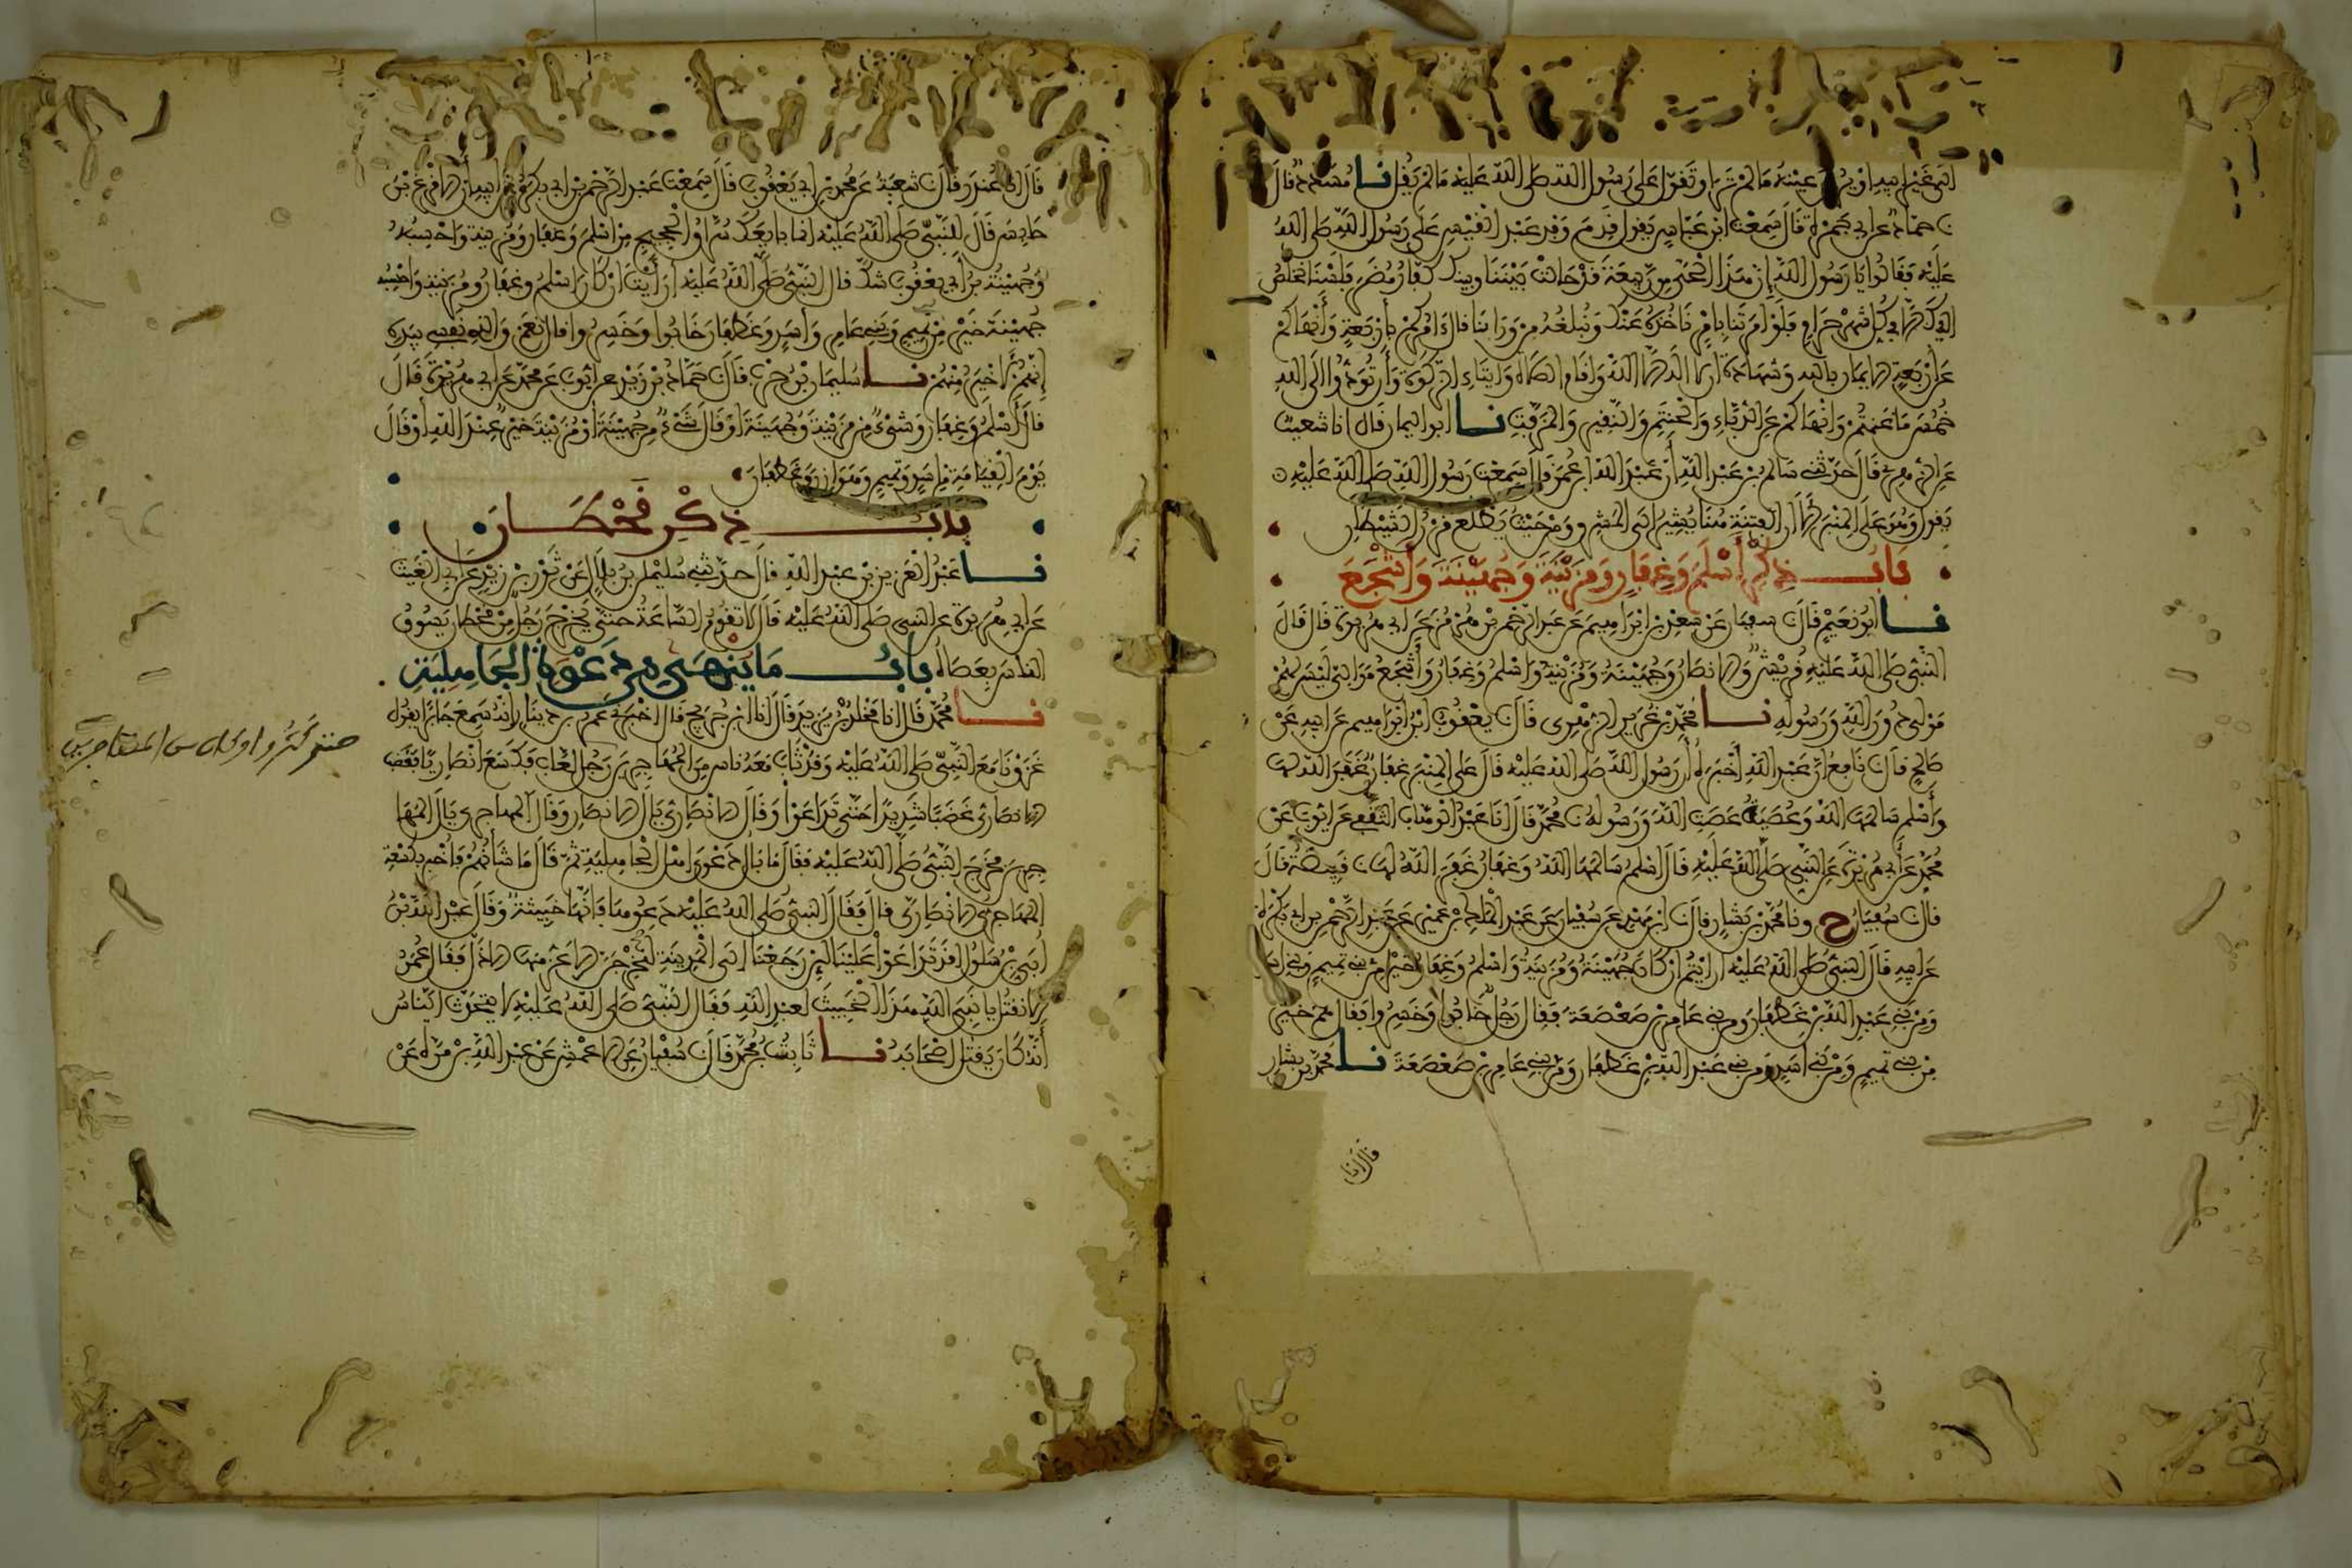 الى غير ابيه او يري عينه ما لم تر او تقول على رسول الله صلى الله عليه ما لم يقل نا مسدد قال
نا حماد عن ابي جمرة قال سمعت ابن عباس يقول قدم وفد عبد القيس على رسول الله صلى الله
عليه فقالوا يا رسول الله ان هذا الحي من ربيعة قد حالت بيننا وبينك كفار مضر فلسنا نخلص
اليك الا في كل شهر حرام فلو امرتنا بامر ناخذه عنك ونبلغه من وراءنا قال امركم باربعة وانهاكم
عن اربعة الايمان بالله وشهادة ان لا اله الا الله واقام الصلاة وايتاء الزكوة وان تودوا الى الله
خمس ما غنمتم وانهاكم عن الدباء والحنتم والنقير والمزفت نا ابو اليمان قال انا شعيب
عن الزهري قال حدثني سالم بن عبد الله ان عبد الله بن عمر قال سمعت رسول الله صلى الله عليه
يقول وهو على المنبر الا ان الفتنة هنا يشير الى المشرق ومن حيث يطلع قرن الشيطان
باب ذكر اسلم وغفار ومزينة وجهينة واشجع
نا ابو نعيم قال نا سفيان عن سعد بن ابراهيم عن عبد الرحمن بن هرمز عن ابي هريرة قال قال
النبي صلى الله عليه قريش والانصار وجهينة ومزينة واسلم وغفار واشجع موالي ليس لهم
مولى دون الله ورسوله نا محمد بن غرير الزهري قال نا يعقوب بن ابراهيم عن ابيه عن
صالح قال نا نافع ان عبد الله اخبره ان رسول الله صلى الله عليه قال على المنبر غفار غفر الله لها
واسلم سالمها الله وعصية عصت الله ورسوله نا محمد قال انا عبد الوهاب الثقفي عن ايوب عن
محمد عن ابي هريرة عن النبي صلى الله عليه قال اسلم سالمها الله وغفار غفر الله لها نا قبيصة قال
قال نا سفيان ح ونا محمد بن بشار قال نا ابن مهدي عن سفيان عن عبد الملك بن عمير عن عبد الرحمن بن ابي بكرة
عن ابيه قال النبي صلى الله عليه ارايتم ان كان جهينة ومزينة واسلم وغفار خيرا من بني تميم وبني اسد
ومن بني عبد الله بن غطفان ومن بني عامر بن صعصعة فقال رجل خابوا وخسروا فقال هم خير
من بني تميم ومن بني اسد ومن بني عبد الله بن غطفان ومن بني عامر بن صعصعة نا محمد بن بشار
قال نا
قال نا غندر قال نا شعبة عن محمد بن ابي يعقوب قال سمعت عبد الرحمن بن ابي بكرة عن ابيه ان الاقرع بن
حابس قال للنبي صلى الله عليه انما بايعك سراق الحجيج من اسلم وغفار ومزينة واحسبه
وجهينة بن ابي يعقوب شك قال النبي صلى الله عليه ارايت ان كان اسلم وغفار ومزينة واحسبه
جهينة خير من تميم وبني عامر واسد وغطفان خابوا وخسروا قال نعم والذي نفسي بيده
انهم لاخير منهم نا سليمان بن حرب قال نا حماد بن زيد عن ايوب عن محمد عن ابي هريرة قال
قال اسلم وغفار وشيء من مزينة وجهينة او قال شيء من جهينة او مزينة خير عند الله او قال
يوم القيامة من اسد وتميم وهوازن وغطفان
باب ذكر قحطان
نا عبد العزيز بن عبد الله قال حدثني سليمن بن بلال عن ثور بن زيد عن ابي الغيث
عن ابي هريرة عن النبي صلى الله عليه قال لا تقوم الساعة حتى يخرج رجل من قحطان يسوق
الناس بعصاه باب ما ينهى من دعوة الجاهلية
نا محمد قال انا مخلد بن يزيد قال انا ابن جريج قال اخبرني عمرو بن دينار انه سمع جابرا يقول
غزونا مع النبي صلى الله عليه وقد ثاب معه ناس من المهاجرين رجل لعاب فكسع انصاريا فغضب
الانصاري غضبا شديدا حتى تداعوا وقال الانصاري يال الانصار وقال المهاجري يال المها
جرين فخرج النبي صلى الله عليه فقال ما بال دعوى اهل الجاهلية ثم قال ما شانهم فاخبر بكسعة
المهاجري الانصاري قال فقال النبي صلى الله عليه دعوها فانها خبيثة وقال عبد الله بن
ابي بن سلول اقد تداعوا علينا لئن رجعنا الى المدينة ليخرجن الاعز منها الاذل فقال عمر
الا نقتل يا نبي الله هذا الخبيث لعبد الله فقال النبي صلى الله عليه لا يتحدث الناس
انه كان يقتل اصحابه نا ثابت بن محمد قال نا سفيان عن الاعمش عن عبد الله بن مرة عن